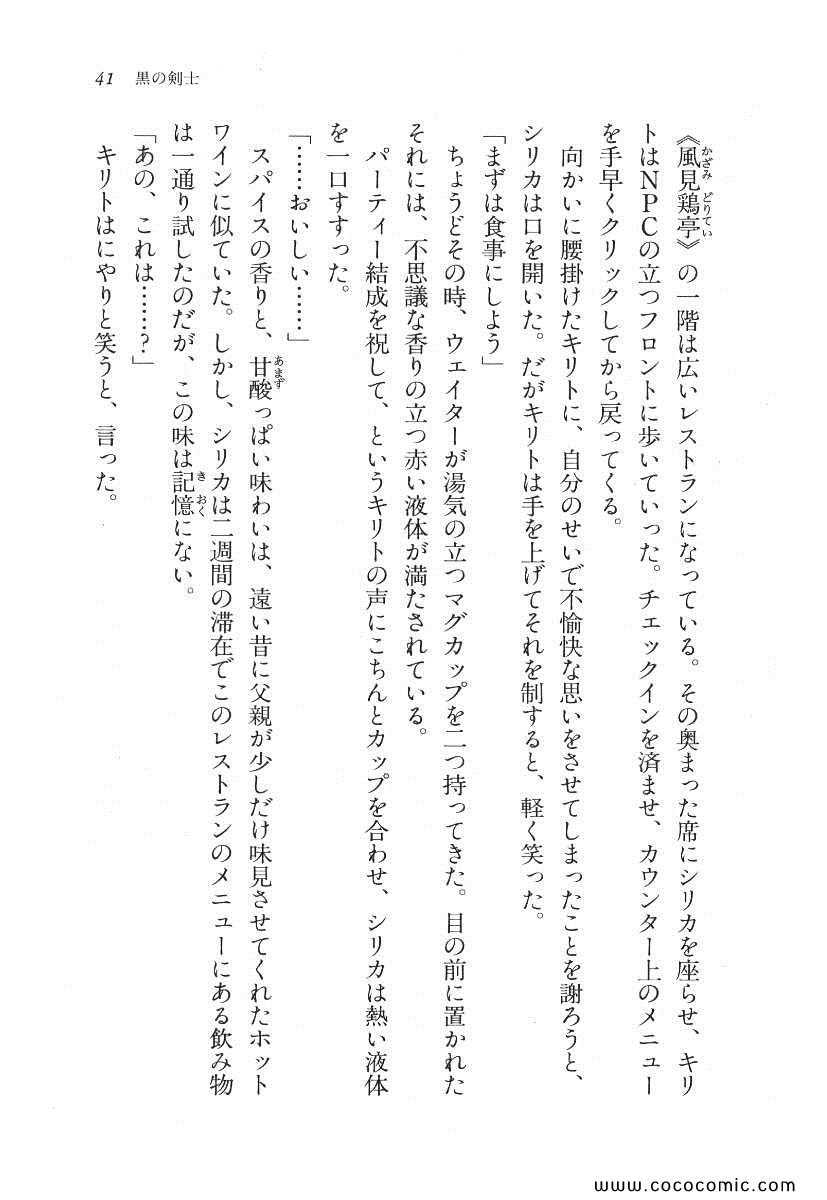 41 黒の剣士
《風見鶏亭》の一階は広いレストランになっている。その奥まった席にシリカを座らせ、キリ
かざみ どりてい
トはNPCの立つフロントに歩いていった。チェックインを済ませ、カウンター上のメニュー
を手早くクリックしてから戻ってくる。
向かいに腰掛けたキリトに、自分のせいで不愉快な思いをさせてしまったことを謝ろうと、
シリカは口を開いた。だがキリトは手を上げてそれを制すると、軽く笑った。
「まずは食事にしよう」
ちょうどその時、ウェイターが湯気の立つマグカップを二つ持ってきた。目の前に置かれた
それには、不思議な香りの立つ赤い液体が満たされている。
パーティー結成を祝して、というキリトの声にこちんとカップを合わせ、シリカは熱い液体
を一口すすった。
「……おいしい……」
スパイスの香りと、甘酸っぱい味わいは、遠い昔に父親が少しだけ味見させてくれたホット
あまず
ワインに似ていた。しかし、シリカは二週間の滞在でこのレストランのメニューにある飲み物
は一通り試したのだが、この味は記憶にない。
きおく
「あの、これは……？」
キリトはにやりと笑うと、言った。
www.cococomic.com